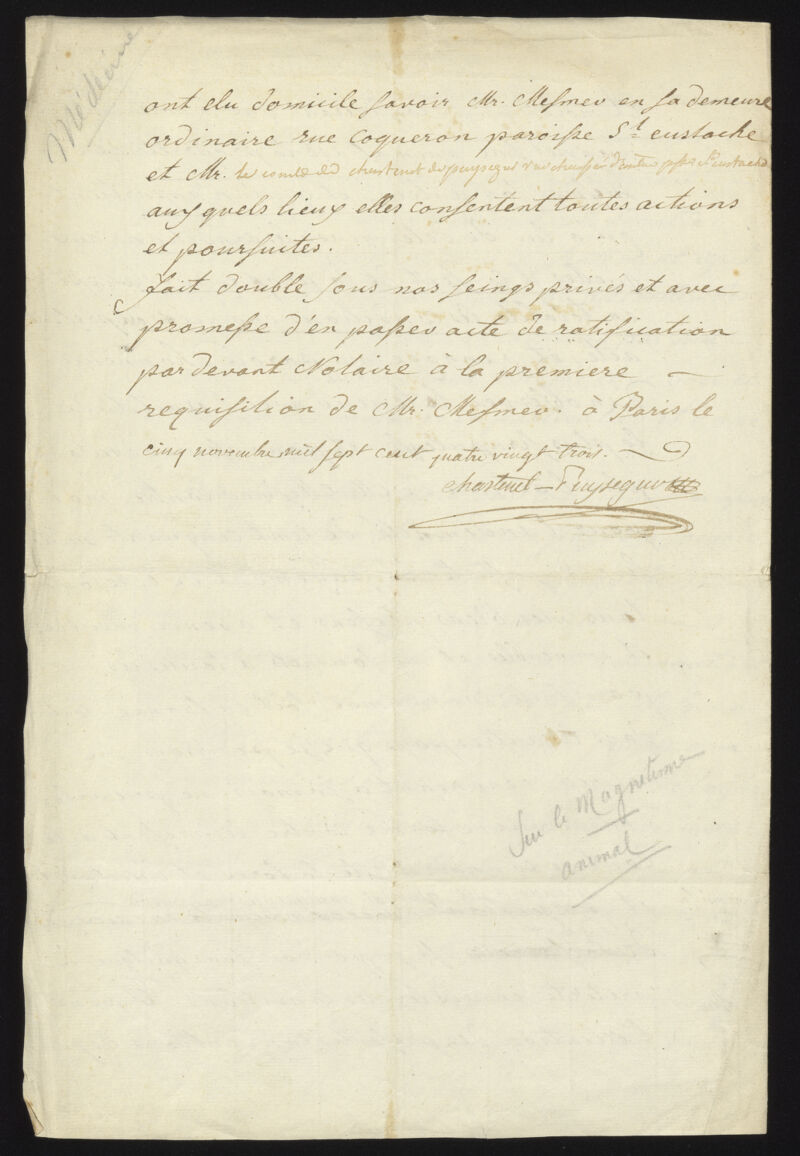 Médecine
ont élu domicile savoir Mr. Mesmer en sa demeure
ordinaire rue Coqueron paroisse St. eustache
et Mr. le comte de chastenet de puysegur rue chaussée d'Antin psse St. Eustache
auxquels lieux elles consentent toutes actions
et poursuites.
fait double sous nos seings privés et avec
promesse d'en passer acte de ratification
pardevant Notaire à la premiere
requisition de Mr. Mesmer. à Paris le
cinq novembre mil sept cent quatre vingt trois.
chastenet-Puysegur
Sur le Magnétisme
animal